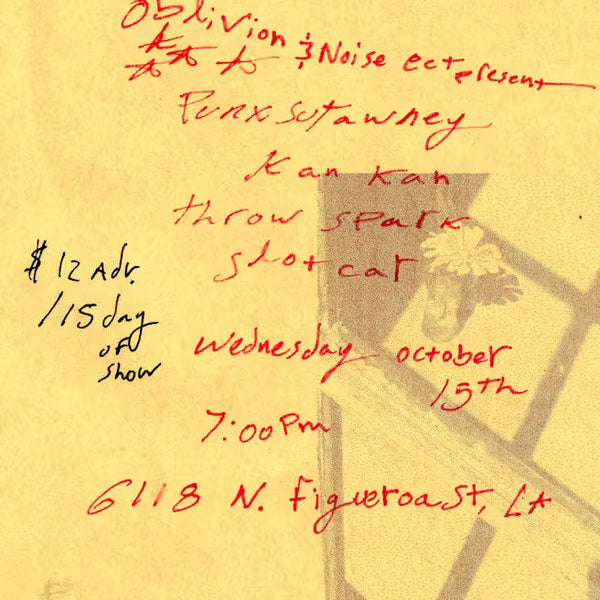 Oblivion
& Noise ect present
Punxsutawney
Kan Kan
throw spark
slot car
$12 Adv.
/15 day
of
show
wednesday october
15th
7:00 Pm
6118 N. figueroa St, LA